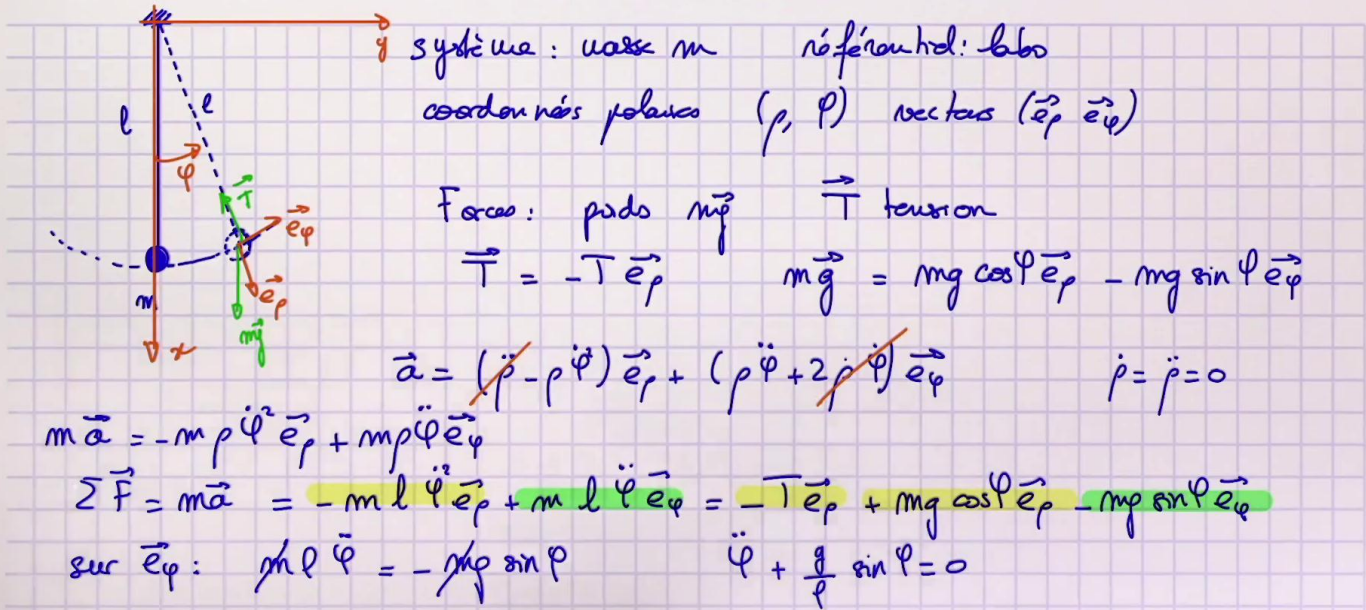 y système : masse m référentiel : labo
l l coordonnées polaires (ρ, φ) vecteurs (e⃗ρ e⃗φ)
φ
T⃗ Forces : poids mg⃗ T⃗ tension
e⃗φ
T⃗ = -T e⃗ρ mg⃗ = mg cosφ e⃗ρ - mg sinφ e⃗φ
m e⃗ρ
mg⃗
x a⃗ = (ρ̈ - ρφ̇²) e⃗ρ + (ρφ̈ + 2ρ̇φ̇) e⃗φ ρ̇ = ρ̈ = 0
ma⃗ = -mρφ̇² e⃗ρ + mρφ̈ e⃗φ
ΣF⃗ = ma⃗ = -mlφ̇² e⃗ρ + mlφ̈ e⃗φ = -T e⃗ρ + mg cosφ e⃗ρ - mg sinφ e⃗φ
sur e⃗φ : mlφ̈ = -mg sinφ φ̈ + g/l sinφ = 0